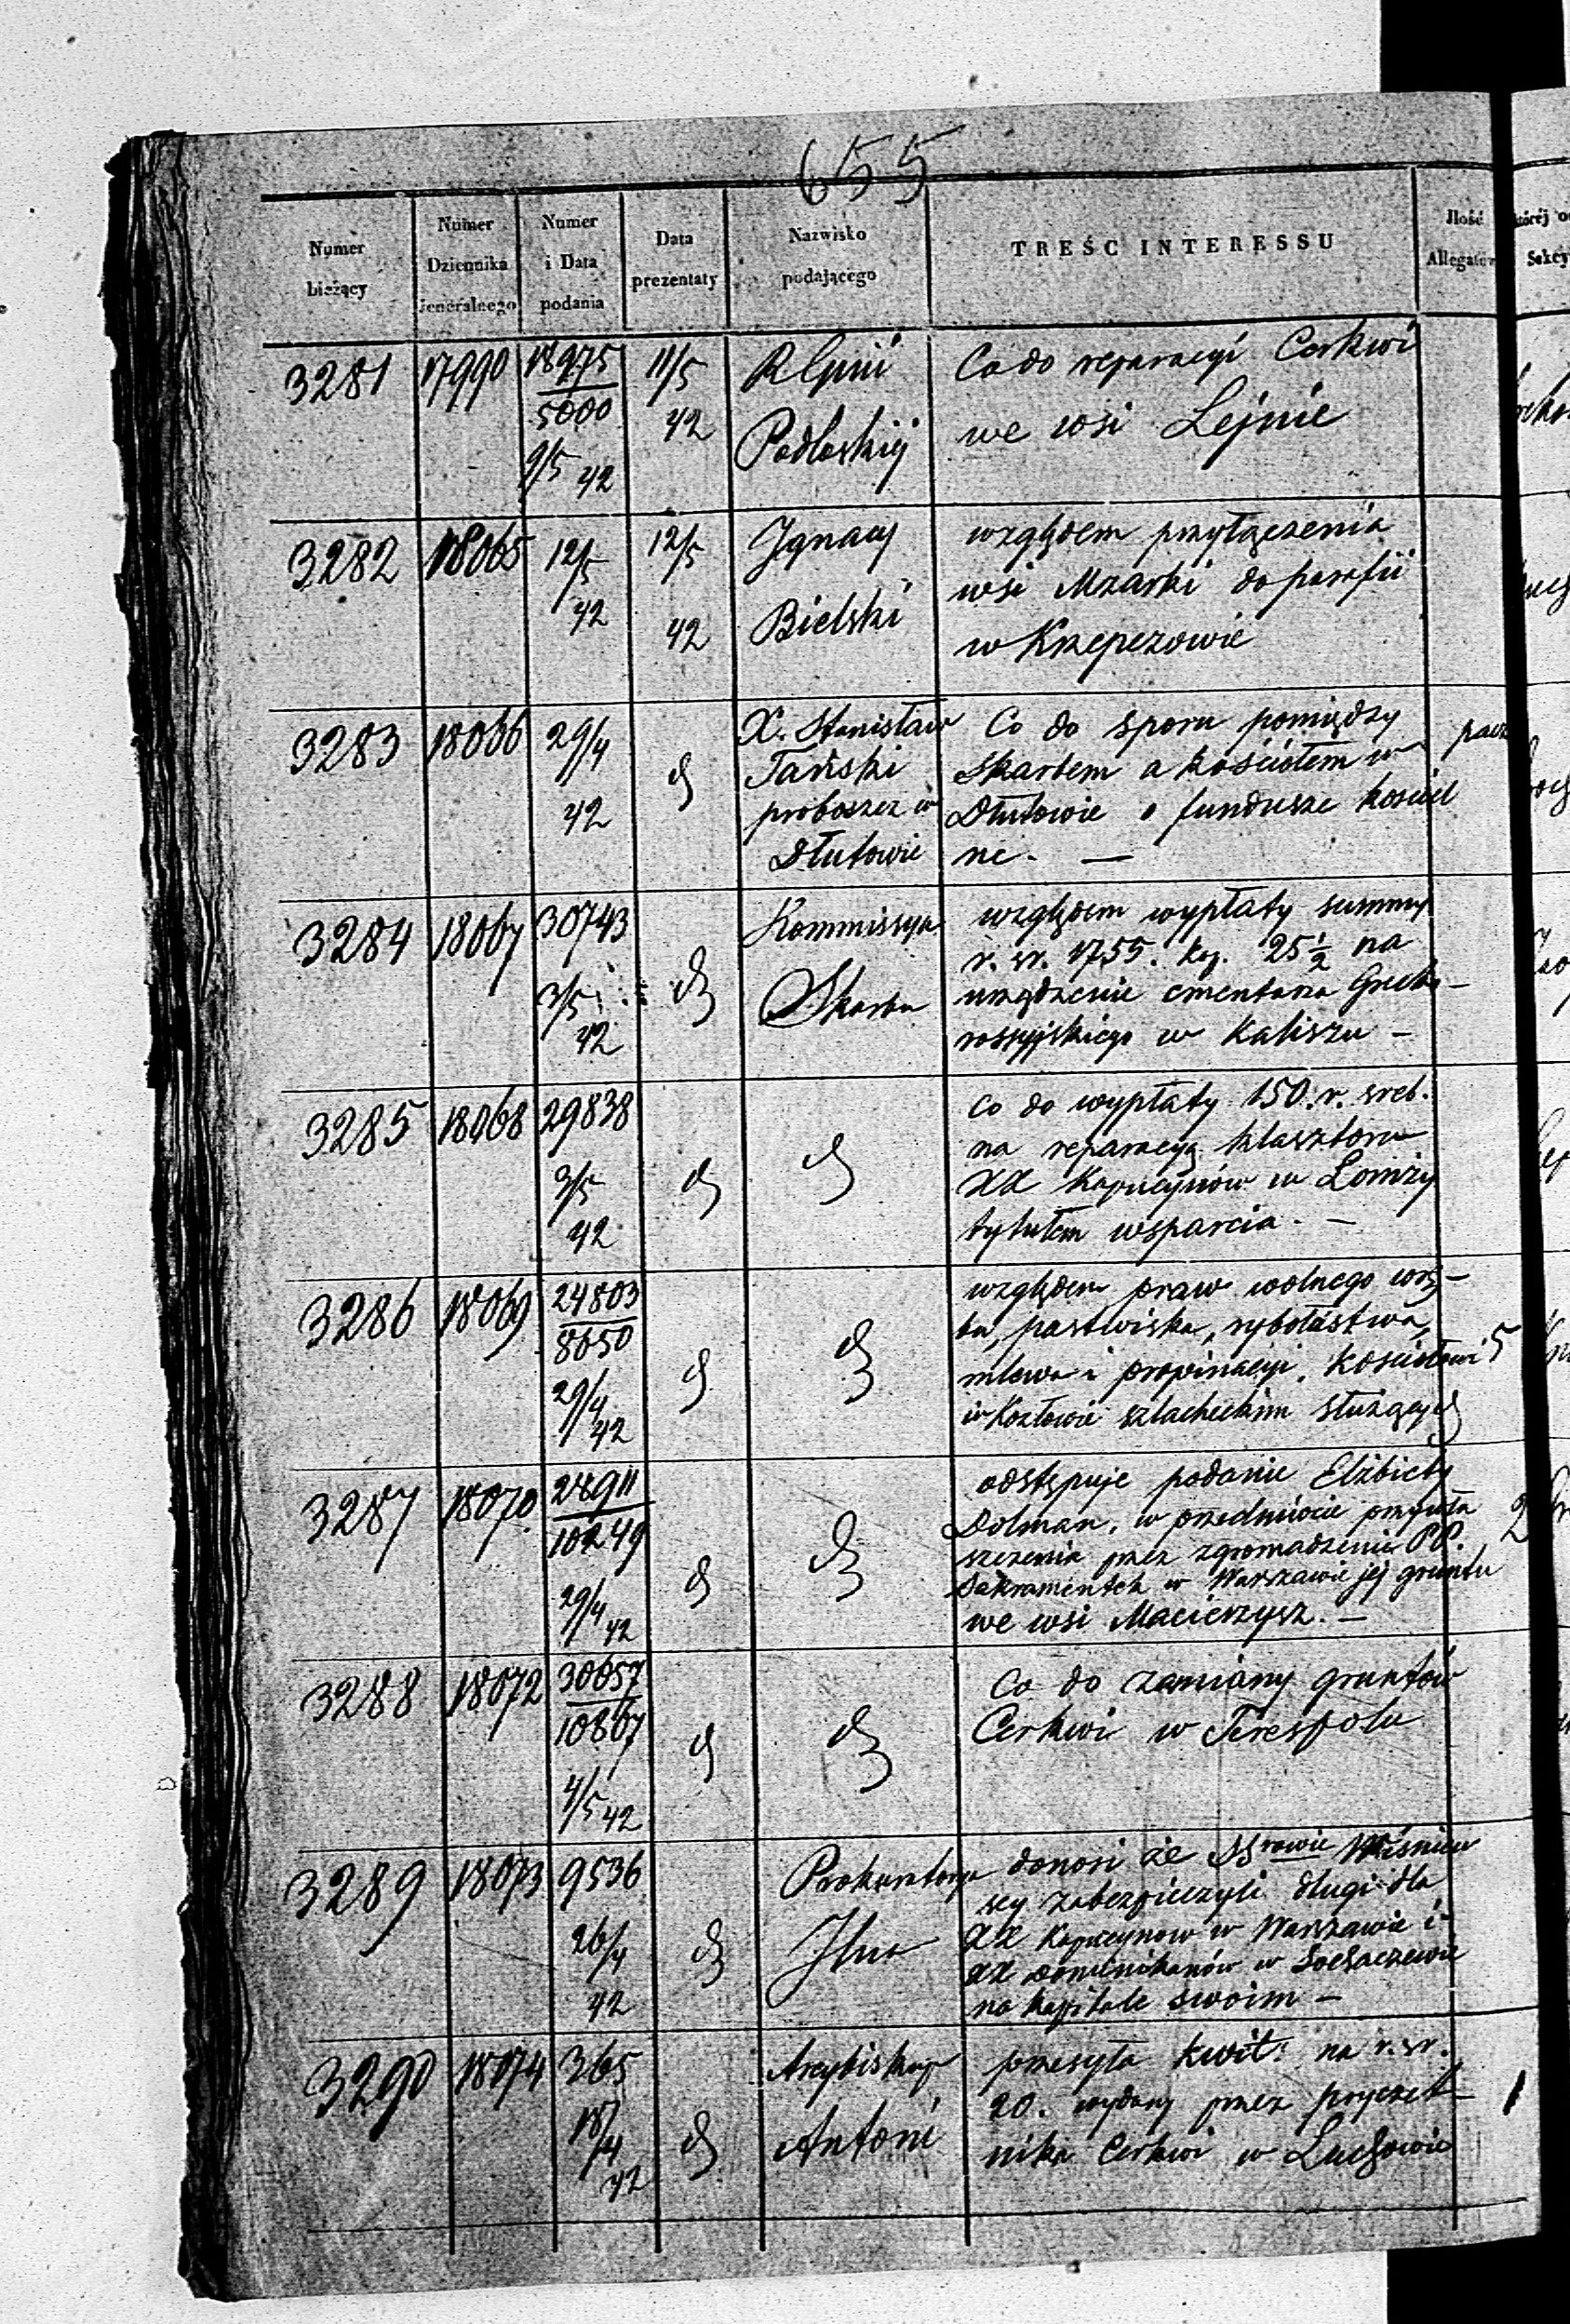 655
Numer bieżący
Numer Dziennika Jeneralnego
Numer i Data podania
Data prezentaty
Nazwisko podającego
TREŚĆ INTERESSU
Ilość Allegatów
3281 17990 18975 11/5 Co do reparacyi Cerkwi
5000 42 Podlaskiij we wsi Lejnie
9/5 42
3282 18065 12/5 12/5 Ignacy względem przyłączenia
42 42 Bielski wsi Mzarki do parafii
w Krzepczowie
3283 18066 29/4 d X. Stanisław Co do sporu pomiędzy
42 Tański Skarbem a kościołem w
proboszcz w Dłutowie o fundusze kościel
Dłutowie ne. —
3284 18067 30743 d Kommissya względem wypłaty summy
3/5 Skarbu r. sr. 1755. kop. 25 1/2 na
42 urządzenie cmentarza Grecko-
rossyjskiego w Kaliszu —
3285 18068 29838 d d co do wypłaty 150. r. sreb.
3/5 na reparacyą klasztoru
42 XX Kapucynów w Łomży
tytułem wsparcia. —
3286 18069 24803 d d względem praw wolnego wrę-
8650 bu, pastwiska, rybołóstwa,
29/4 mlewa i propinacyi, kościołowi 5
42 w Kozłowie szlacheckim służących
3287 18070 28911 d d odstępuje podanie Elżbiety
10249 Dolman, w przedmiocie przywła
29/4 szczenia przez zgromadzenie PP.
42 Sakramentek w Warszawie jej gruntu
we wsi Macierzysz. —
3288 18072 30657 d d Co do zamiany gruntów
10867 Cerkwi w Terespolu
4/5 42
3289 18073 9536 d Prokuratorya donosi że SSrowie Wiśniew
26/4 scy zabezpieczyli długi dla
42 XX Kapucynow w Warszawie i
XX Dominikanów w Sochaczewie
na kapitale swoim —
3290 18074 365 d Arcybiskup przesyła kwit. na r. sr.
18/4 Antoni 20. wydany przez
42 Cerkwi w